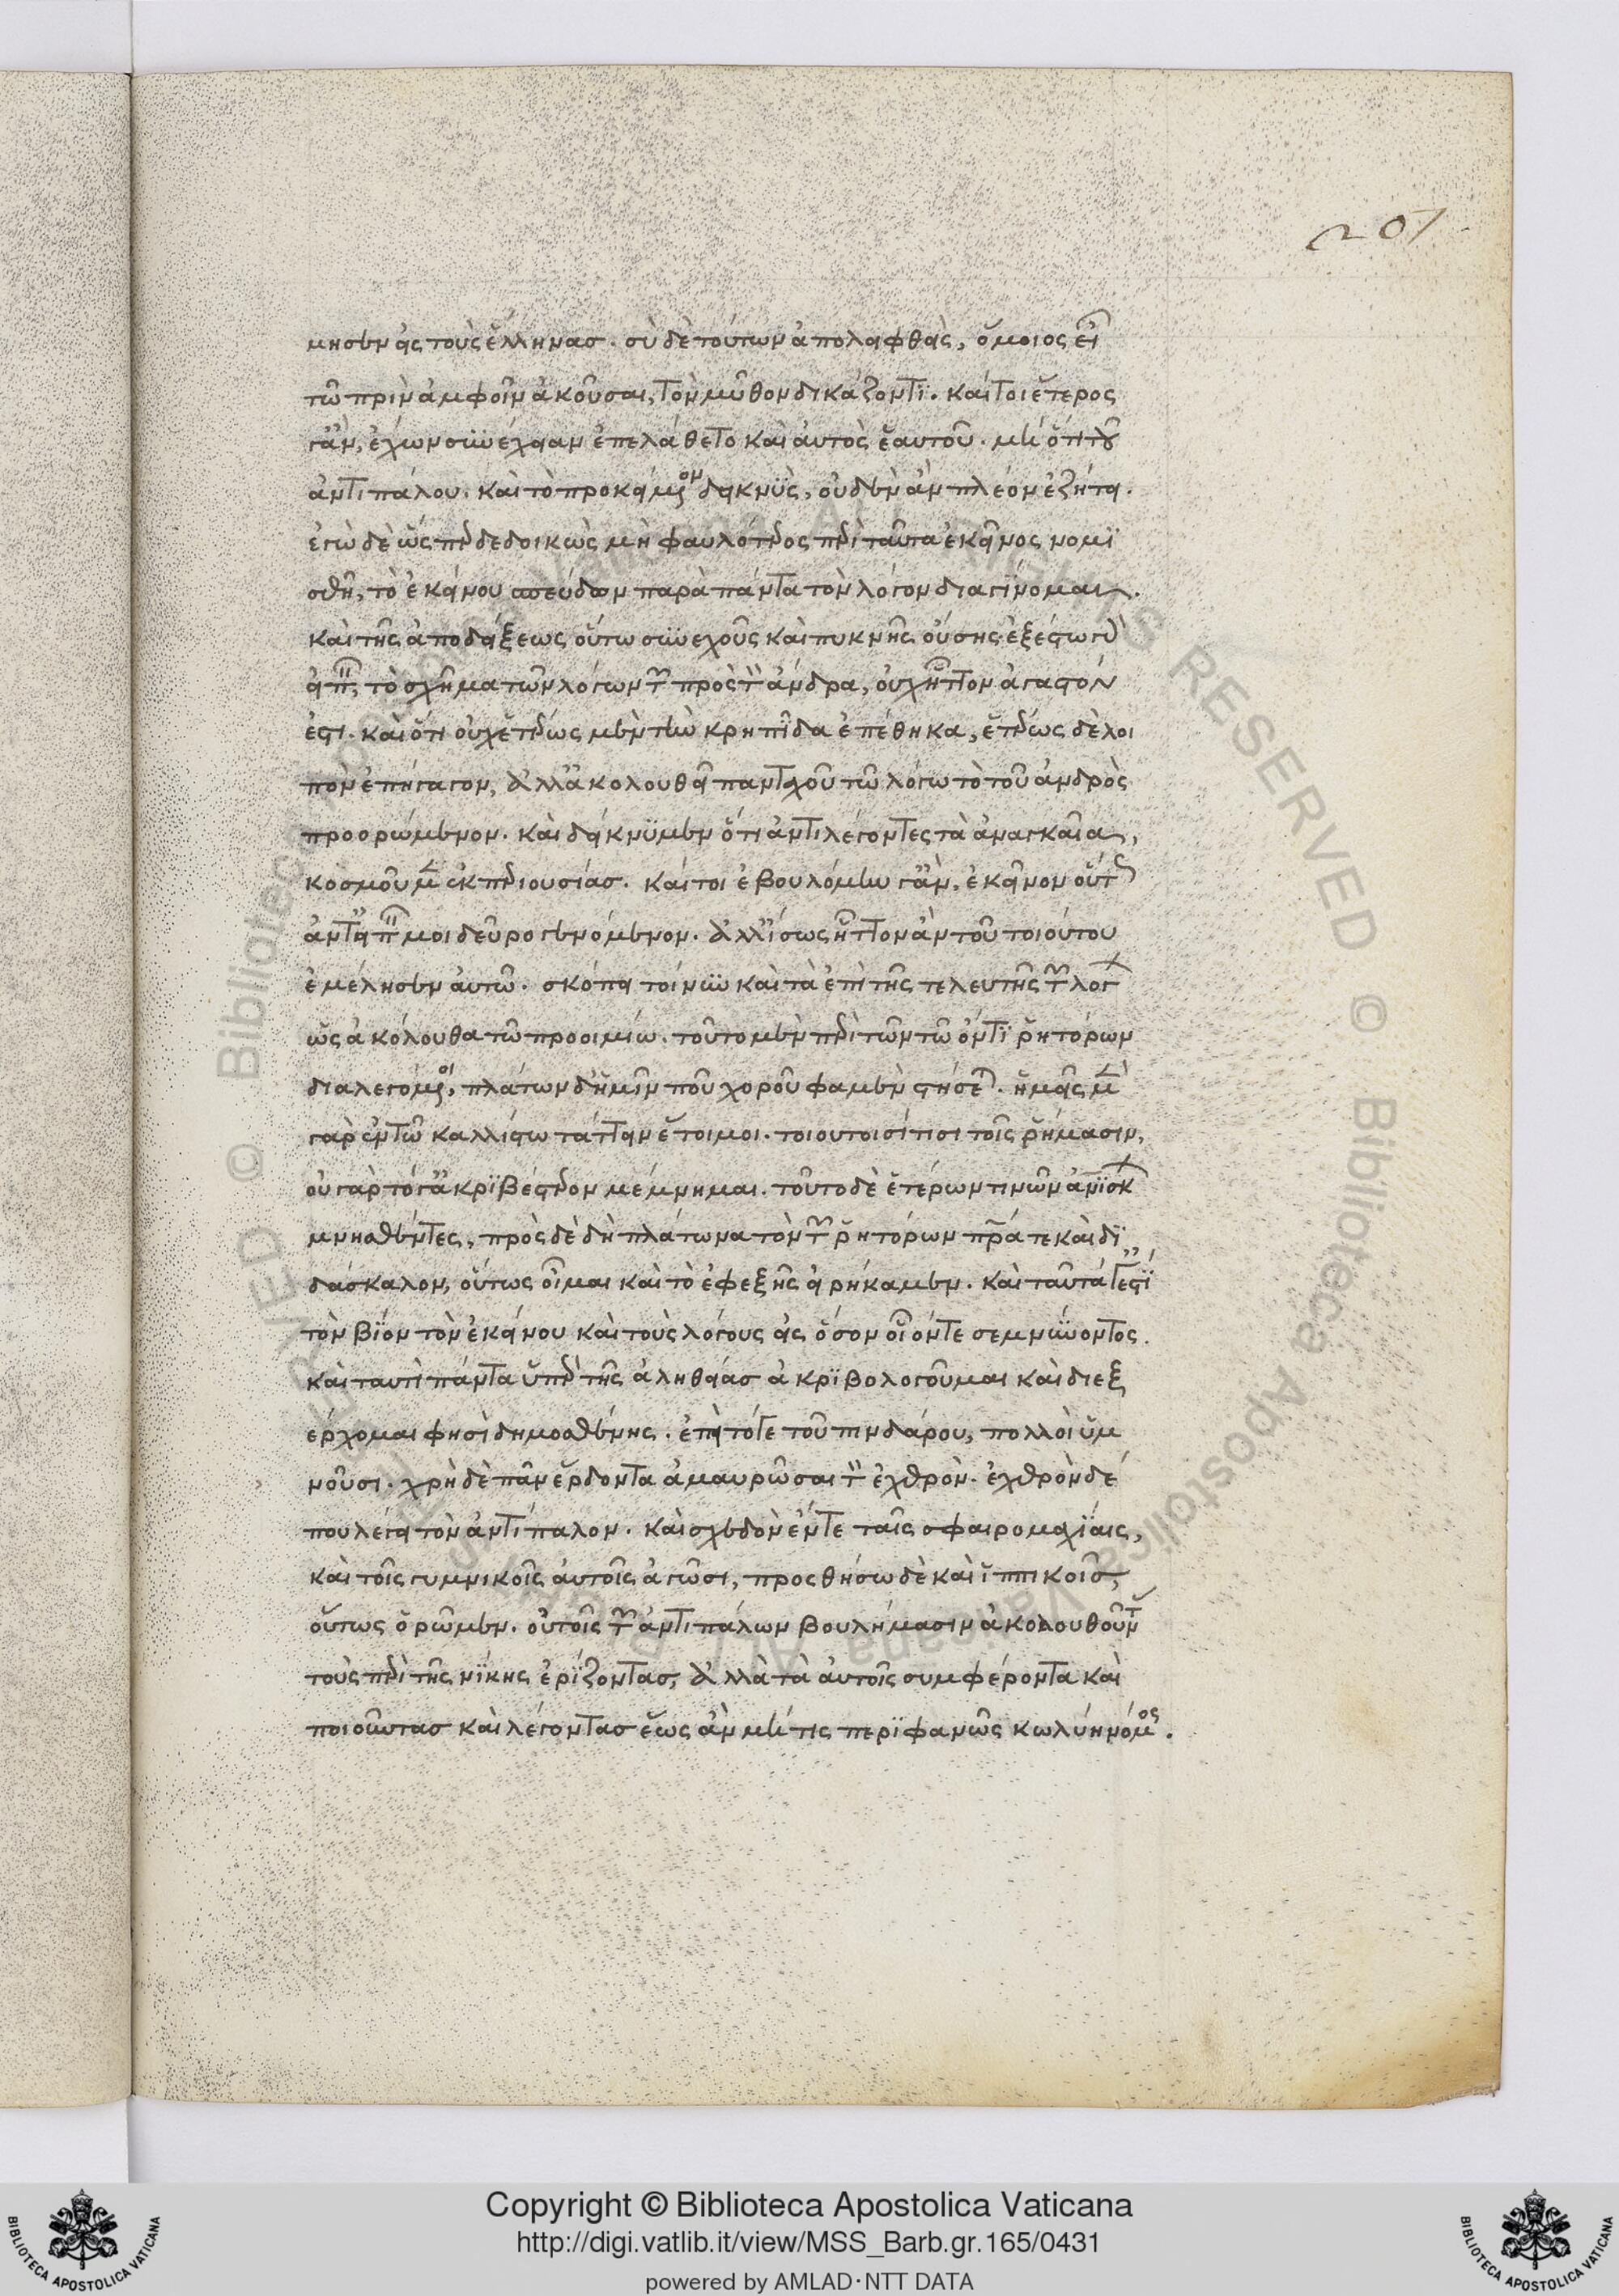 201
μησεν εἰς τοὺς ἕλληνας. σὺ δὲ τούτων ἀπολειφθεὶς, ὅμοιος εἶ
τῶ πρὶν ἀμφοῖν ἀκοῦσαι, τὸν μῦθον δικάζοντϊ. καίτοι ἕτερος
γἂν, ἐχίων συνέχειαν ἐπελάθετο καὶ αὐτὸς ἑαυτοῦ. μὴ ὅτι τοῦ
ἀντιπάλου. καὶ τὸ προκείμενον δεικνὺς, οὐδὲν ἂν πλέον ἐζήτει.
ἐγὼ δὲ ὥσπερ δεδοικὼς μὴ φαυλότερος περὶ ταῦτα ἐκεῖνος νομϊ
σθῆ, τὸ ἐκείνου σπεύδων παρὰ πάντα τὸν λόγον διαγίνομαι.
καὶ τῆς ἀποδείξεως οὕτω συνεχοῦς καὶ πυκνῆς οὔσης ἐξέστω γὰρ
εἰπεῖν, τὸ σχῆμα τῶν λόγων τῶν πρὸς τὸν ἄνδρα, οὐχ ἧττον ἀγαστόν
ἐστι. καὶ ὅτι οὐχ ἑτέρως μὲν τὴν κρηπῖδα ἐπέθηκα, ἑτέρως δὲ λοι
πὸν ἐπήγαγον, ἀλλ' ἀκολουθεῖ πανταχοῦ τῶ λόγω τὸ τοῦ ἀνδρὸς
προορώμενον. καὶ δείκνϋμεν ὅτι ἀντιλέγοντες τὰ ἀναγκαῖα,
κοσμοῦμεν ἐκ περιουσίας. καίτοι ἐβουλόμην γἂν, ἐκεῖνον οὕτως
ἀντειπεῖν μοι δεῦρο γενόμενον. ἀλλ' ἴσως ἧττον ἂν τοῦ τοιούτου
ἐμέλησεν αὐτῶ. σκόπει τοίνυν καὶ τὰ ἐπὶ τῆς τελευτῆς τῶν λόγων
ὡς ἀκόλουθα τῶ προοιμίω. τοῦτο μὲν περὶ τῶν τῶ ὄντϊ ῥητόρων
διαλεγόμενοι, πλάτων δ' ἡμῖν ποῦ χοροῦ φαμὲν στήσεται. ἡμεῖς μὲν
γὰρ ἐν τῶ καλλίστω τάττειν ἕτοιμοι. τοιουτοισί τισι τοῖς ῥήμασιν,
οὐ γὰρ τόγ' ἀκρϊβέστερον μέμνημαι. τοῦτο δὲ ἑτέρων τινῶν
μνησθέντες, πρὸς δὲ δὴ πλάτωνα τὸν τῶν ῥητόρων πατέρα τε καὶ δϊ
δάσκαλον, οὕτως οἶμαι καὶ τὸ ἐφεξῆς εἰρήκαμεν. καὶ ταῦτά γ' ἐστὶ
τὸν βϊόν τὸν ἐκείνου καὶ τοὺς λόγους εἰς ὅσον οἷόν τε σεμνύνοντος.
καὶ ταυτὶ πάντα ὑπὲρ τῆς ἀληθείας ἀκρϊβολογοῦμαι καὶ διεξ
έρχομαι φησὶ δημοσθένης. ἐπεὶ τόγε τοῦ πινδάρου, πολλοὶ ὑμ
νοῦσι. χρὴ δὲ πᾶν ἔρδοντα ἀμαυρῶσαι τὸν ἐχθρὸν. ἐχθρὸν δέ
που λέγει τὸν ἀντίπαλον. καὶ σχεδὸν ἔν τε ταῖς σφαιρομαχϊαις,
καὶ τοῖς γυμνικοῖς αὐτοῖς ἀγῶσι, προσθήσω δὲ καὶ ἱππικοῖς,
οὕτως ὁρῶμεν. οὐ τοῖς τῶν ἀντιπάλων βουλήμασιν ἀκολουθοῦντας
τοὺς περὶ τῆς νίκης ἐρϊζοντας, ἀλλὰ τὰ αὐτοῖς συμφέροντα καὶ
ποιοῦντας καὶ λέγοντας ἕως ἂν μή τις περϊφανῶς κωλύη νόμος.
Copyright © Biblioteca Apostolica Vaticana
http://digi.vatlib.it/view/MSS_Barb.gr.165/0431
powered by AMLAD·NTT DATA